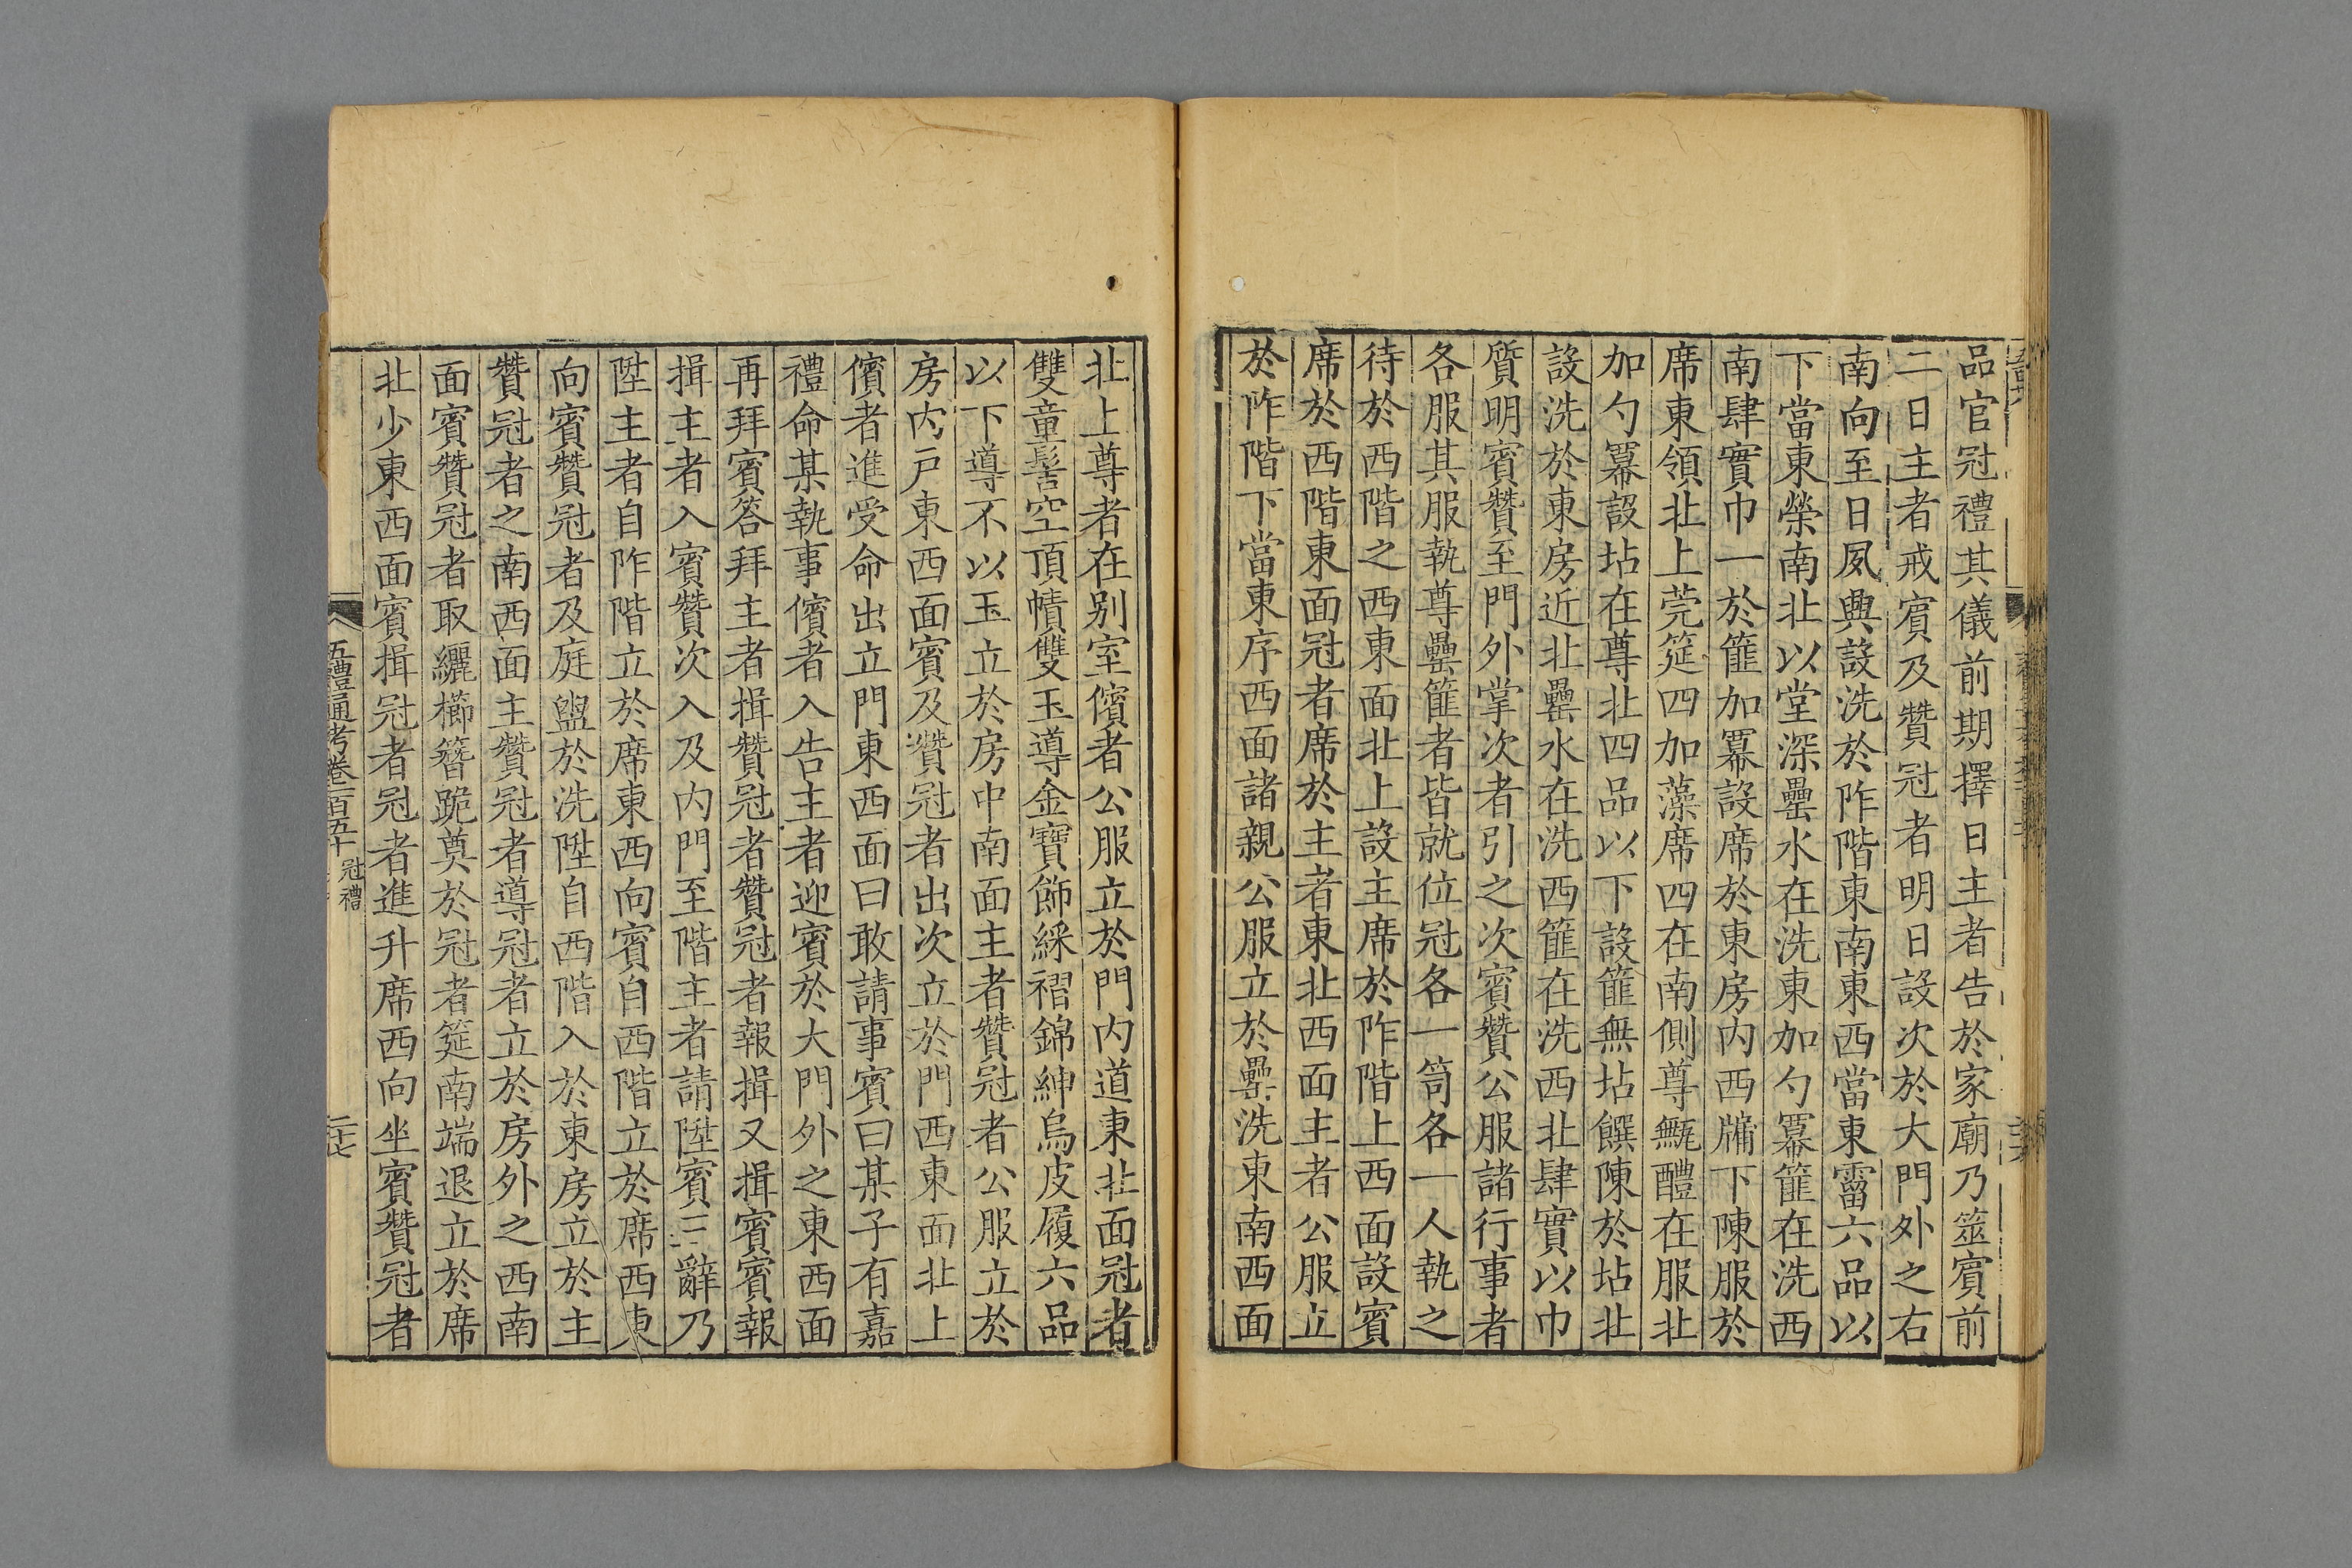 品官冠禮其儀前期擇日主者告於家廟乃筮賓前
二日主者戒賓及贊冠者明日設次於大門外之右
南向至日夙興設洗於阼階東南東西當東霤六品以
下當東榮南北以堂深罍水在洗東加勺冪篚在洗西
南肆實巾一於篚加冪設席於東房內西牖下陳服於
席東領北上莞筵四加藻席四在南側尊甒醴在服北
加勺冪設坫在尊北四品以下設篚無坫饌陳於坫北
設洗於東房近北罍水在洗西篚在洗西北肆實以巾
質明賓贊至門外掌次者引之次賓贊公服諸行事者
各服其服執尊罍篚者皆就位冠各一笥各一人執之
待於西階之西東面北上設主席於阼階上西面設賓
席於西階東面冠者席於主者東北西面主者公服立
於阼階下當東序西面諸親公服立於罍洗東南西面
北上尊者在别室儐者公服立於門内道東北面冠者
雙童髻空頂幘雙玉導金寶飾綵褶錦紳烏皮履六品
以下導不以玉立於房中南面主者贊冠者公服立於
房内戸東西面賓及贊冠者出次立於門西東面北上
儐者進受命出立門東西面曰敢請事賓曰某子有嘉
禮命某執事儐者入告主者迎賓於大門外之東西面
再拜賓答拜主者揖贊冠者贊冠者報揖又揖賓賓報
揖主者入賓贊次入及内門至階主者請陞賓三辭乃
陞主者自阼階立於席東西向賓自西階立於席西東
向賓贊冠者及庭盥於洗陞自西階入於東房立於主
贊冠者之南西面主贊冠者導冠者立於房外之西南
面賓贊冠者取纚櫛簪跪奠於冠者筵南端退立於席
北少東西面賓揖冠者冠者進升席西向坐賓贊冠者
五禮通考卷一百五十 冠禮
二十七